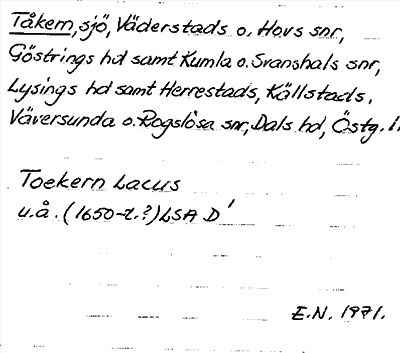 Tåkern, sjö, Väderstads o. Hovs snr,
Göstrings hd samt Kumla o. Svanshals snr,
Lysings hd samt Herrestads, Källstads,
Väversunda o. Rogslösa snr, Dals hd, Östg. l.
Toekern Lacus
u.å. (1650-t.?) LSA D'
E.N. 1971.